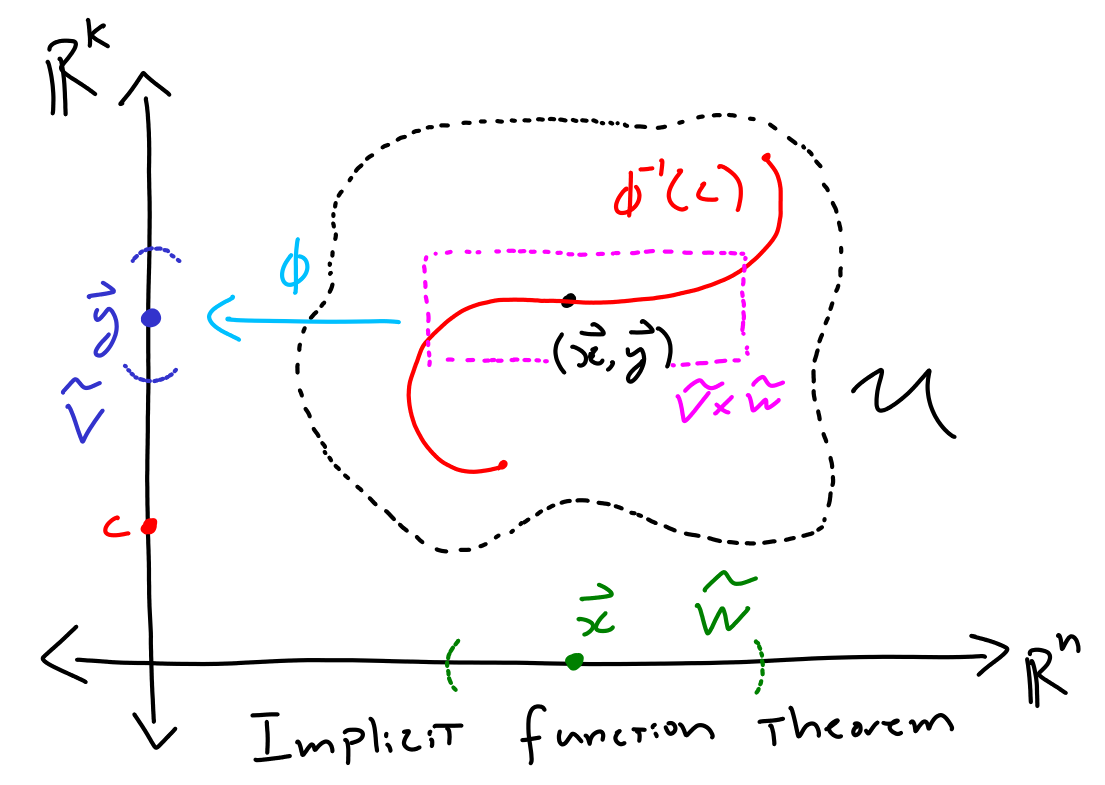 ℝᵏ
ϕ⁻¹(c)
ϕ
y⃗
(x⃗, y⃗)
Ṽ
Ṽ×W̃
U
c
x⃗
W̃
ℝⁿ
Implicit function Theorem